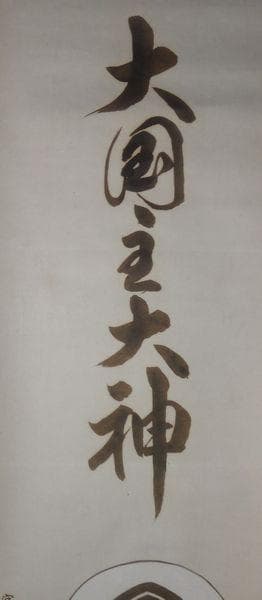 大国主大神